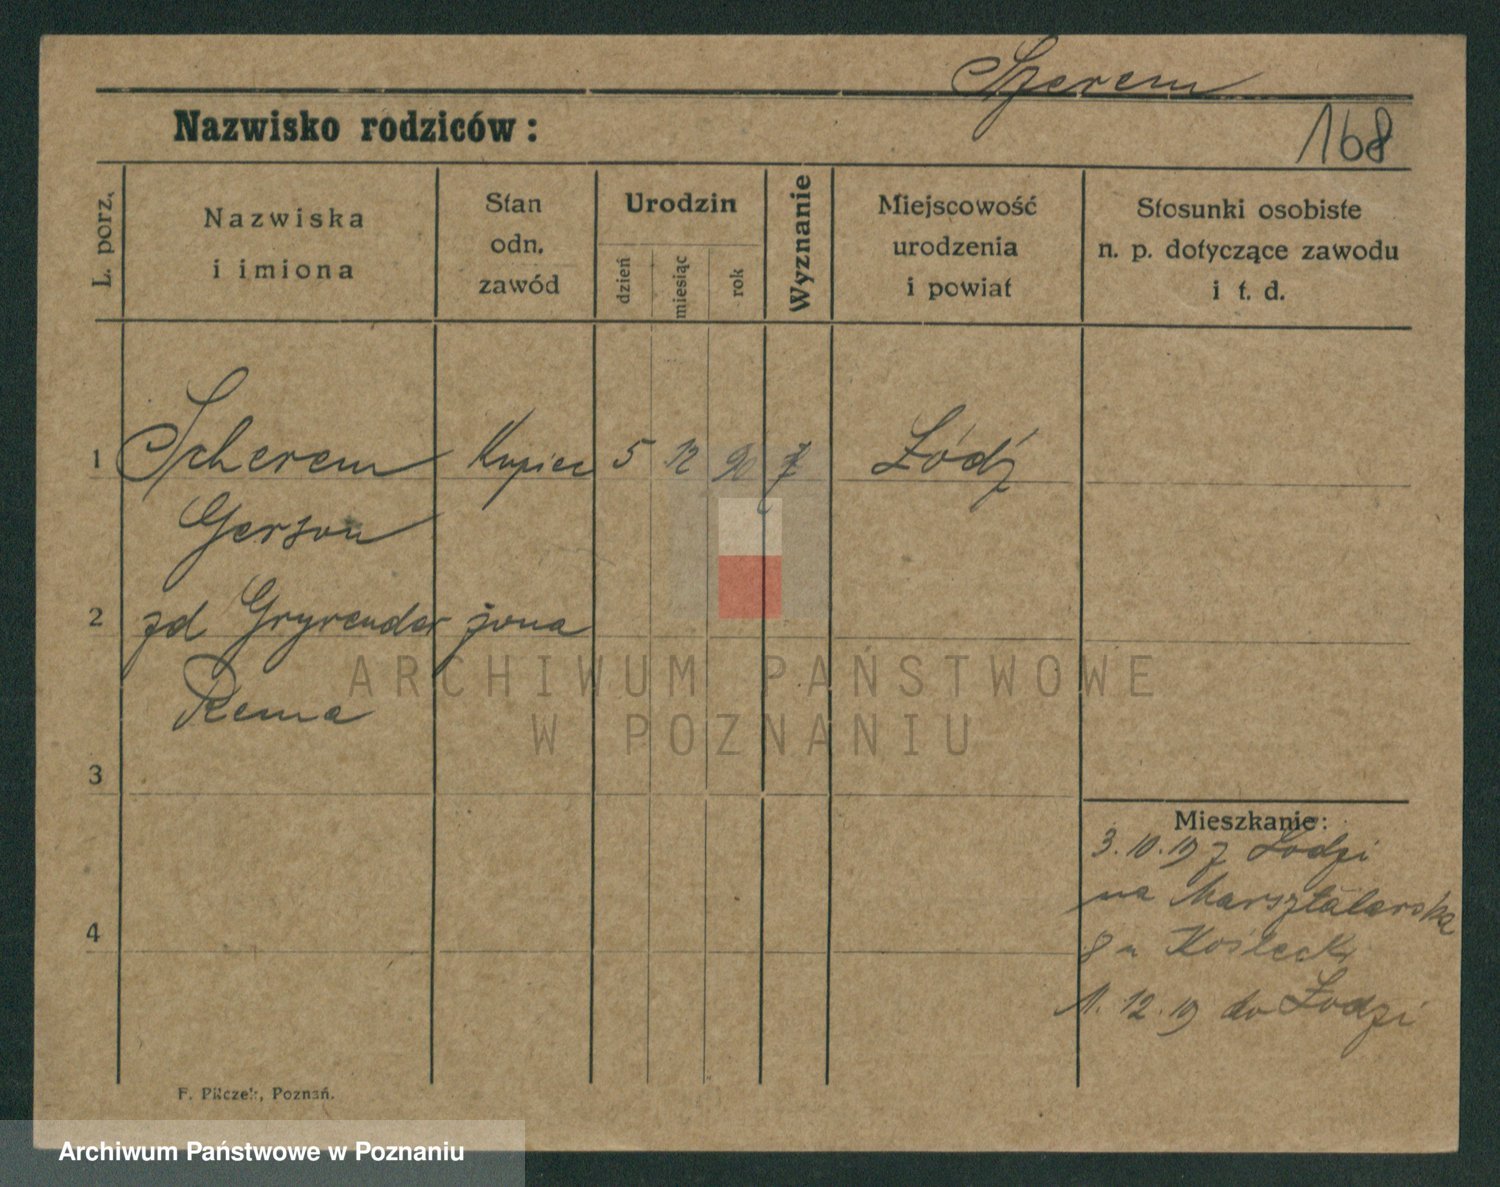 Szerem
Nazwisko rodziców:
168
L. porz.
Nazwiska
i imiona
Stan
odn.
zawód
Urodzin
dzień
miesiąc
rok
Wyznanie
Miejscowość
urodzenia
i powiat
Stosunki osobiste
n. p. dotyczące zawodu
i t. d.
1 Scherem Kupiec 5 12 90 ż Łódź
Gerson
2 zd Gryrender żona
Rema
ARCHIWUM PAŃSTWOWE
W POZNANIU
3
Mieszkanie:
3.10.19 z Łodzi
na Marsztalarska
8 u Kośleck
4
1.12.19 do Łodzi
F. Pilczek, Poznań.
Archiwum Państwowe w Poznaniu